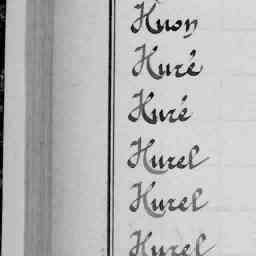 Huon
Huré
Huré
Hurel
Hurel
Hurel